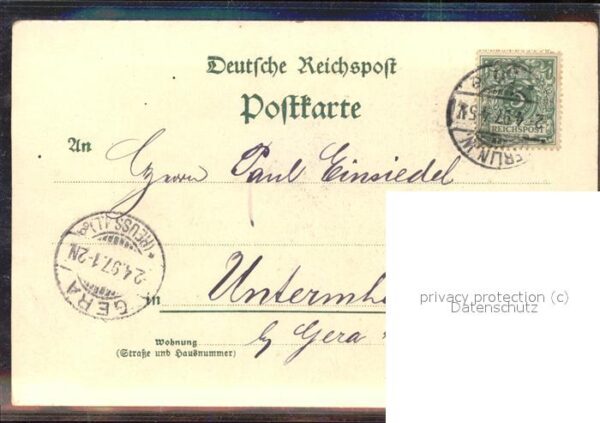 Deutsche Reichspost
Postkarte
5
REICHSPOST
BERLIN.W.
2.4.97.
An
Herrn Paul Einsiedel
GERA
2.4.97.1-2N
*(REUSS J.L.)*
in
Untermh
b/ Gera
Wohnung
(Straße und Hausnummer)
privacy protection (c)
Datenschutz